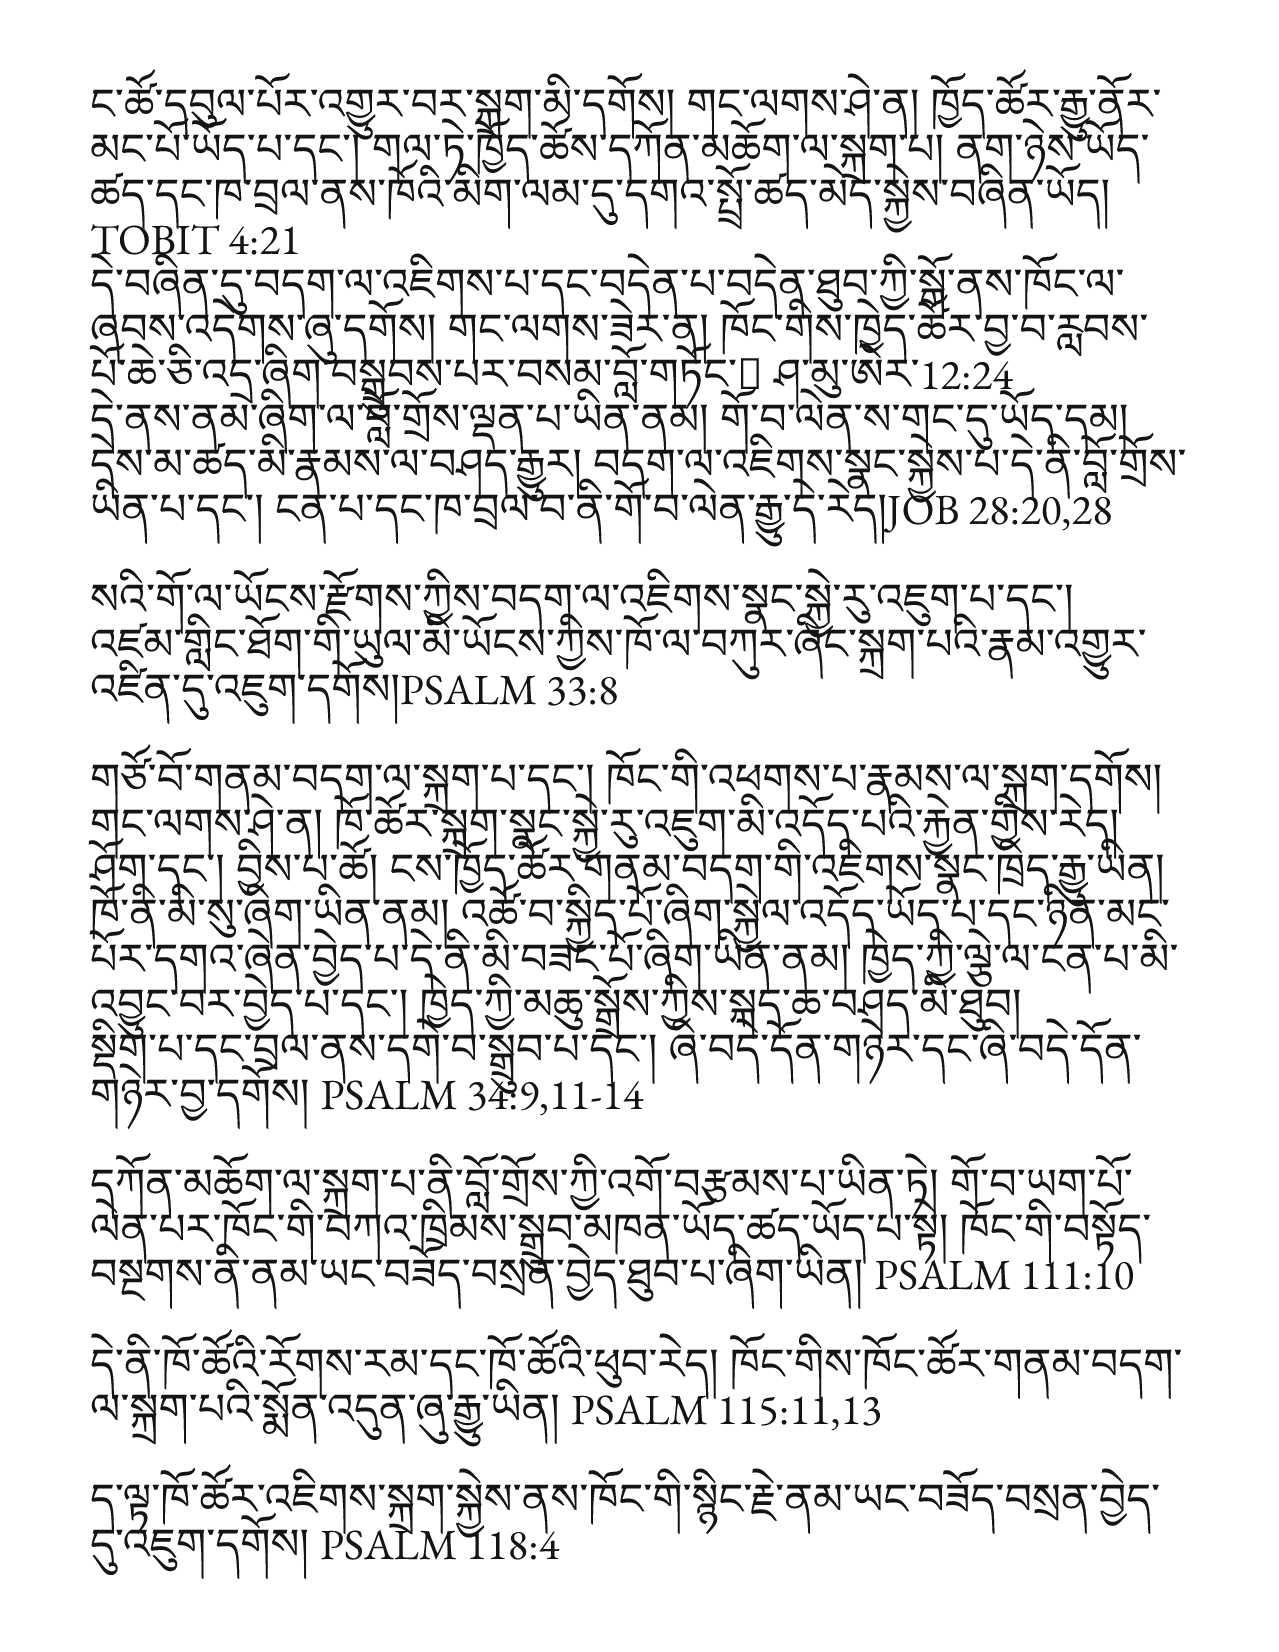 ང་ཚོ་དབུལ་པོར་འགྱུར་བར་སྐྲག་མི་དགོས། གང་ལགས་ཤེ་ན། ཁྱོད་ཚོར་རྒྱུ་ནོར་
མང་པོ་ཡོད་པ་དང་། གལ་ཏེ་ཁྱོད་ཚོས་དཀོན་མཆོག་ལ་སྐྲག་པ། ནག་ཉེས་ཡོད་
ཚད་དང་ཁ་བྲལ་ནས་ཁོའི་མིག་ལམ་དུ་དགའ་སྤྲོ་ཚད་མེད་སྐྱེས་བཞིན་ཡོད།
TOBIT 4:21
དེ་བཞིན་དུ་བདག་ལ་འཇིགས་པ་དང་བདེན་པ་བདེན་ཐུབ་ཀྱི་སྒོ་ནས་ཁོང་ལ་
ཞབས་འདེགས་ཞུ་དགོས། གང་ལགས་ཟེར་ན། ཁོང་གིས་ཁྱེད་ཚོར་བྱ་བ་རླབས་
པོ་ཆེ་ཅི་འདྲ་ཞིག་བསྒྲུབས་པར་བསམ་བློ་གཏོང་ ཤ་མུ་ཨེར་12:24
དེ་ནས་ནམ་ཞིག་ལ་བློ་གྲོས་ལྡན་པ་ཡིན་ནམ། གོ་བ་ལེན་ས་གང་དུ་ཡོད་དམ།
དེས་མ་ཚད་མི་རྣམས་ལ་བཤད་རྒྱུར། བདག་ལ་འཇིགས་སྣང་སྐྱེས་པ་དེ་ནི་བློ་གྲོས་
ཡིན་པ་དང་། ངན་པ་དང་ཁ་བྲལ་བ་ནི་གོ་བ་ལེན་རྒྱུ་དེ་རེད།JOB 28:20,28
སའི་གོ་ལ་ཡོངས་རྫོགས་ཀྱིས་བདག་ལ་འཇིགས་སྣང་སྐྱེ་རུ་འཇུག་པ་དང་།
འཛམ་གླིང་ཐོག་གི་ཡུལ་མི་ཡོངས་ཀྱིས་ཁོ་ལ་བཀུར་ཞིང་སྐྲག་པའི་རྣམ་འགྱུར་
འཛིན་དུ་འཇུག་དགོས།PSALM 33:8
གཙོ་བོ་གནམ་བདག་ལ་སྐྲག་པ་དང་། ཁོང་གི་འཕགས་པ་རྣམས་ལ་སྐྲག་དགོས།
གང་ལགས་ཤེ་ན། ཁོ་ཚོར་སྐྲག་སྣང་སྐྱེ་རུ་འཇུག་མི་འདོད་པའི་རྐྱེན་གྱིས་རེད།
ཤོག་དང་། བྱིས་པ་ཚོ། ངས་ཁྱོད་ཚོར་གནམ་བདག་གི་འཇིགས་སྣང་ཁྲིད་རྒྱུ་ཡིན།
ཁོ་ནི་མི་སུ་ཞིག་ཡིན་ནམ། འཚོ་བ་སྐྱིད་པོ་ཞིག་སྐྱེལ་འདོད་ཡོད་པ་དང་ཉིན་མང་
པོར་དགའ་ཞེན་བྱེད་པ་དེ་ནི་མི་བཟང་པོ་ཞིག་ཡིན་ནམ། ཁྱེད་ཀྱི་ལྕེ་ལ་ངན་པ་མི་
འབྱུང་བར་བྱེད་པ་དང་། ཁྱེད་ཀྱི་མཆུ་སྒྲོས་ཀྱིས་སྐད་ཆ་བཤད་མི་ཐུབ།
སྡིག་པ་དང་བྲལ་ནས་དགེ་བ་སྒྲུབ་པ་དང་། ཞི་བདེ་དོན་གཉེར་དང་ཞི་བདེ་དོན་
གཉེར་བྱ་དགོས། PSALM 34:9,11-14
དཀོན་མཆོག་ལ་སྐྲག་པ་ནི་བློ་གྲོས་ཀྱི་འགོ་བརྩམས་པ་ཡིན་ཏེ། གོ་བ་ཡག་པོ་
ལེན་པར་ཁོང་གི་བཀའ་ཁྲིམས་སྒྲུབ་མཁན་ཡོད་ཚད་ཡོད་པ་སྟེ། ཁོང་གི་བསྟོད་
བསྔགས་ནི་ནམ་ཡང་བཟོད་བསྲན་བྱེད་ཐུབ་པ་ཞིག་ཡིན། PSALM 111:10
དེ་ནི་ཁོ་ཚོའི་རོགས་རམ་དང་ཁོ་ཚོའི་ཕུབ་རེད། ཁོང་གིས་ཁོང་ཚོར་གནམ་བདག་
ལ་སྐྲག་པའི་སྨོན་འདུན་ཞུ་རྒྱུ་ཡིན། PSALM 115:11,13
ད་ལྟ་ཁོ་ཚོར་འཇིགས་སྐྲག་སྐྱེས་ནས་ཁོང་གི་སྙིང་རྗེ་ནམ་ཡང་བཟོད་བསྲན་བྱེད་
དུ་འཇུག་དགོས། PSALM 118:4